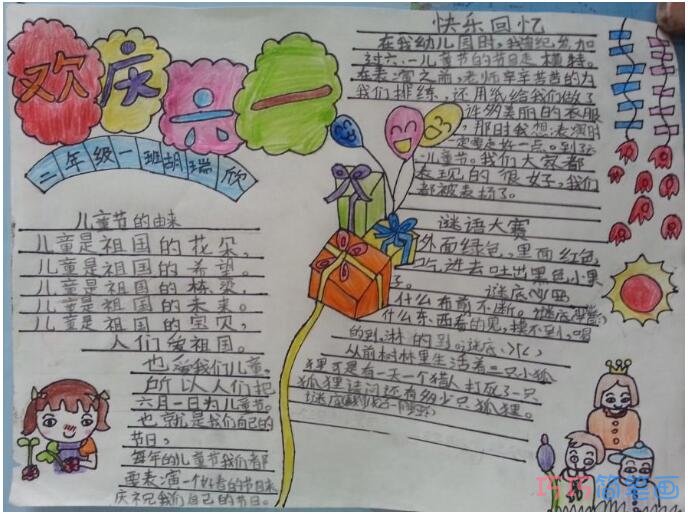 欢庆六一
二年级一班胡瑞欣
儿童节的由来
儿童是祖国的花朵,
儿童是祖国的希望。
儿童是祖国的栋梁,
儿童是祖国的未来。
儿童是祖国的宝贝,
人们爱祖国。
也爱我们儿童。
所以人们把
六月一日为儿童节。
也就是我们自己的
节日,
每年的儿童节我们都
要表演一个好看的节目来
庆祝我们自己的节日。
快乐回忆
在我幼儿园时,我曾纪参加
过六.一儿童节的节目走模特。
在表演之前,老师辛辛苦苦的为
我们排练,还用纸给我们做了
许多美丽的衣服
,那时我想:表演时
一定要走好一点。到了六
一儿童节。我们大家都
表现的很好,我们
都被表扬了。
谜语大赛
外面绿色,里面红色
吃进去吐出黑色小果
了。谜底
什么布前不断。谜底
什么东西看的见,摸不到,喝
的到,淋的到。谜底
从前树林里生活着一只小狐
狸可是有一天一个猎人打死了一只
狐狸请问还有多少只狐狸。
谜底
巧巧简笔画